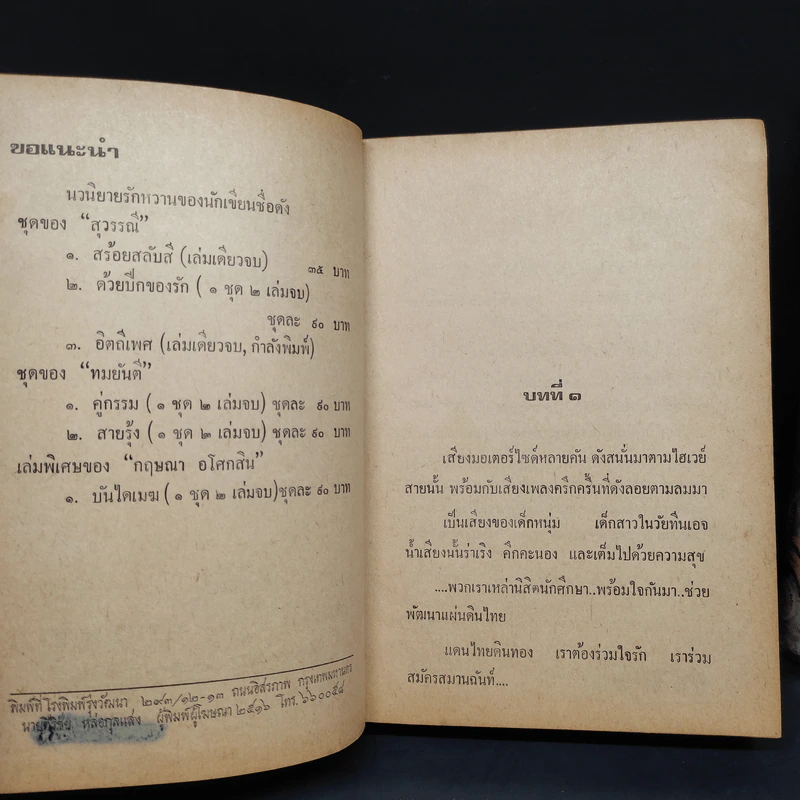 ขอแนะนำ
นวนิยายรักหวานของนักเขียนชื่อดัง
ชุดของ “สุวรรณี”
๑. สร้อยสลับสี (เล่มเดียวจบ)
๓๕ บาท
๒. ด้วยปีกของรัก ( ๑ ชุด ๒ เล่มจบ)
ชุดละ ๙๐ บาท
๓. อิตถีเพศ (เล่มเดียวจบ, กำลังพิมพ์)
ชุดของ “ทมยันตี”
๑. คู่กรรม ( ๑ ชุด ๒ เล่มจบ) ชุดละ ๙๐ บาท
๒. สายรุ้ง ( ๑ ชุด ๓ เล่มจบ) ชุดละ ๙๐ บาท
เล่มพิเศษของ “กฤษณา อโศกสิน”
๑. บันไดเมฆ ( ๑ ชุด ๒ เล่มจบ)ชุดละ ๙๐ บาท
พิมพ์ที่ โรงพิมพ์รุ่งวัฒนา ๒๙๓/๑๒-๑๓ ถนนอิสรภาพ กรุงเทพมหานคร
หล่อกุลแสง ผู้พิมพ์ผู้โฆษณา ๒๕๑๖ โทร. ๖๖๐๐๕๔
บทที่ ๑
เสียงมอเตอร์ไซด์หลายคัน ดังสนั่นมาตามไฮเวย์
สายนั้น พร้อมกับเสียงเพลงครึกครื้นที่ดังลอยตามลมมา
เป็นเสียงของเด็กหนุ่ม เด็กสาวในวัยทีนเอจ
น้ำเสียงนั้นร่าเริง คึกคะนอง และเต็มไปด้วยความสุข
....พวกเราเหล่านิสิตนักศึกษา..พร้อมใจกันมา..ช่วย
พัฒนาแผ่นดินไทย
แดนไทยดินทอง เราต้องร่วมใจรัก เราร่วม
สมัครสมานฉันท์....